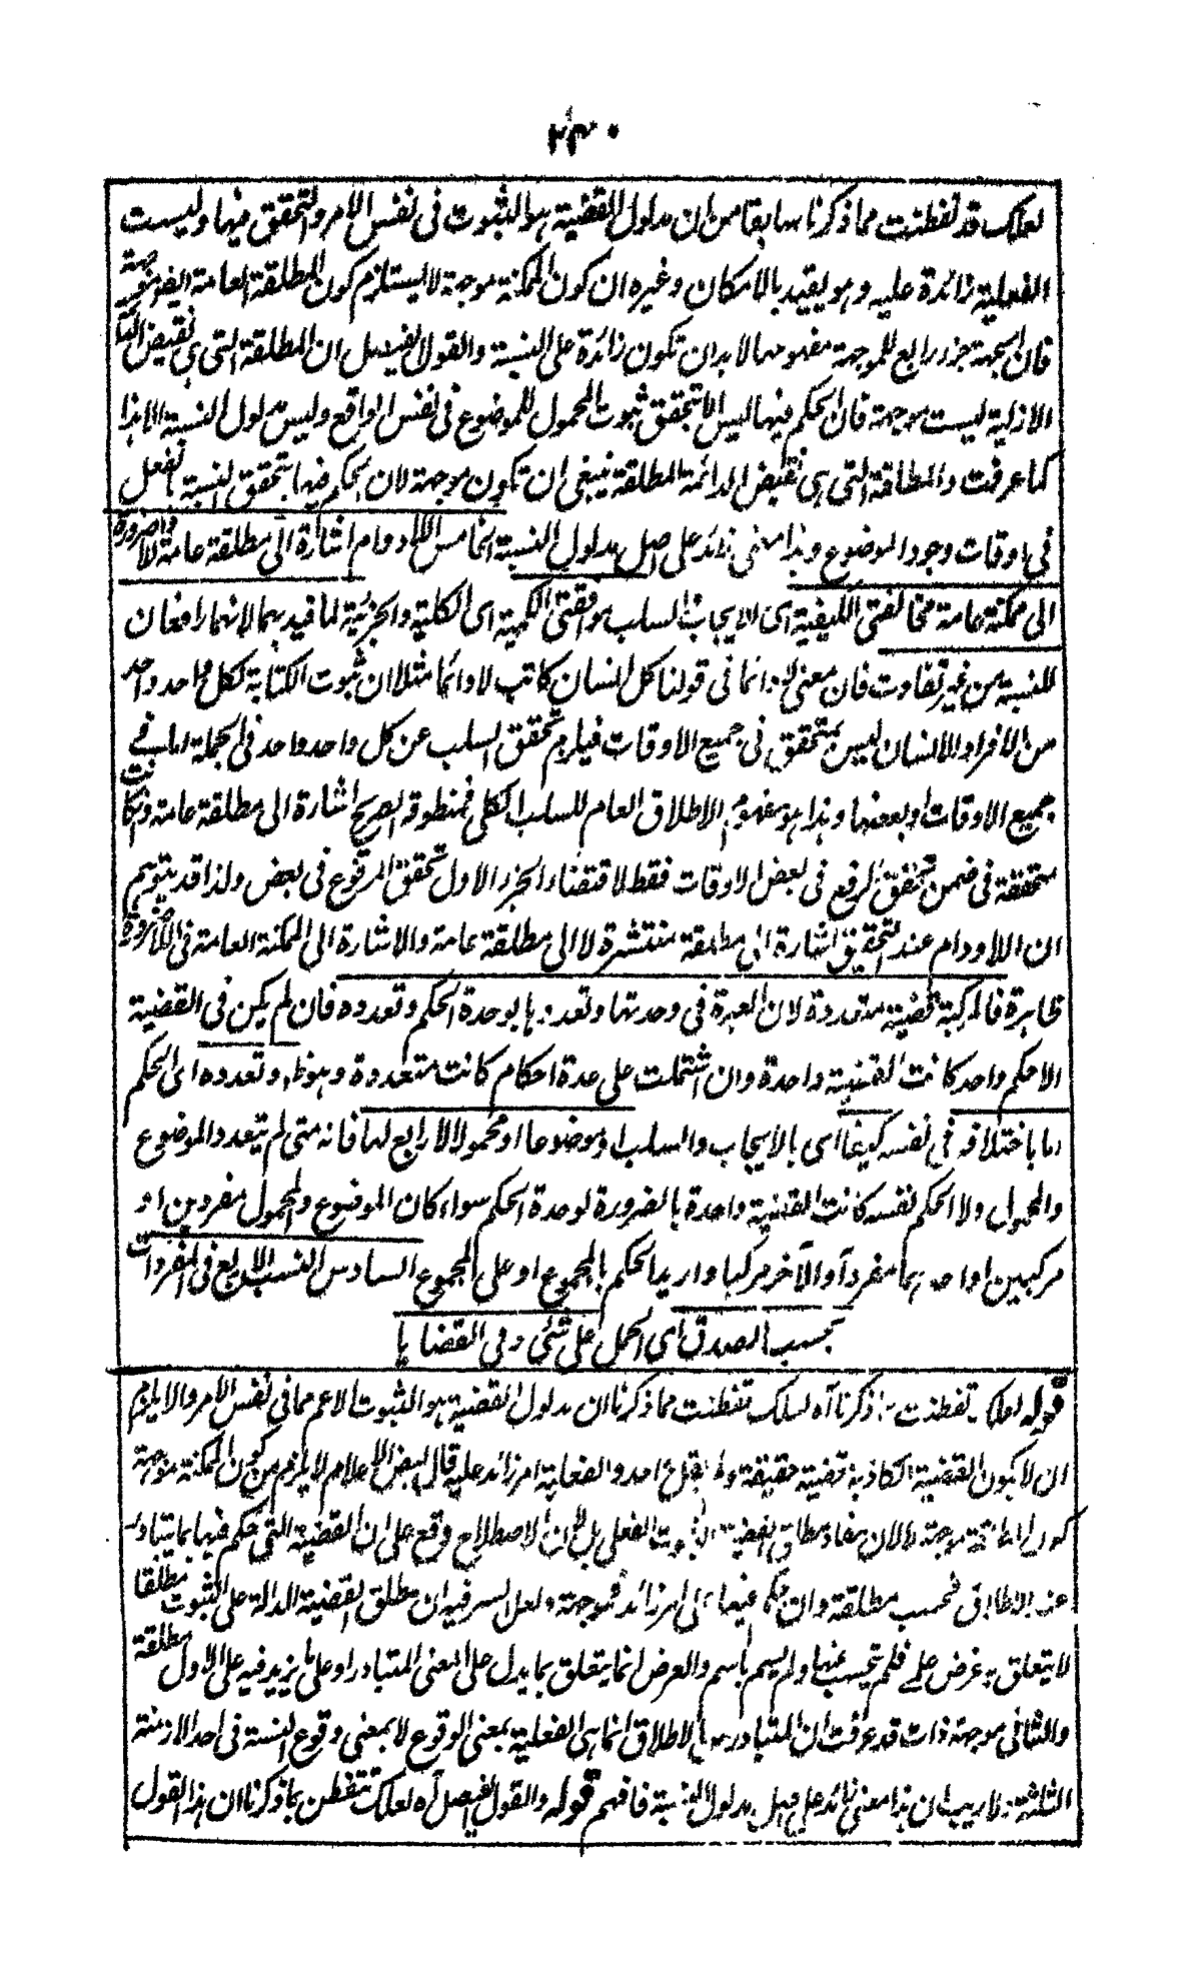 ٢٣٠
لعلك قد تفطنت مما ذكرنا سابقا من ان مدلول القضية هو الثبوت فى نفس الامر والتحقق فيها وليست
الفعلية زائدة عليه وهو يقيد بالامكان وغيره ان كون الممكنة موجهة لا يستلزم كون المطلقة العامة ايضا موجهة
فان الجهة جزء رابع للموجهة مفهومها لابد ان تكون زائدة على النسبة والقول الفيصل ان المطلقة التى هى نقيض الدائمة
الازلية ليست بموجهة فان الحكم فيها ليس الا بتحقق ثبوت المحمول للموضوع فى نفس الواقع وليس مدلول النسبة الا هذا
كما عرفت والمطلقة التى هى نقيض الدائمة المطلقة ينبغى ان تكون موجهة لان الحكم فيها بتحقق النسبة بالفعل
فى اوقات وجود الموضوع وهذا معنى زائد على اصل مدلول النسبة الخامس اللادوام اشارة الى مطلقة عامة واللاضرورة
الى ممكنة عامة مخالفتى الكيفية اى الايجاب والسلب موافقتى الكمية اى الكلية والجزئية لما قيد بهما لانهما رافعان
للنسبة من غير تفاوت فان معنى لا دائما فى قولنا كل انسان كاتب لا دائما مثلا ان ثبوت الكتابة لكل واحد واحد
من الافراد للانسان ليس بمتحقق فى جميع الاوقات فيلزم تحقق السلب عن كل واحد واحد فى الجملة اما فى
جميع الاوقات او بعضها وهذا هو مفهوم الاطلاق العام للسلب الكلى فمنطوقه الصريح اشارة الى مطلقة عامة وان كانت
متحققة فى ضمن تحقق الرفع فى بعض الاوقات فقط لاقتضاء الجزء الاول تحقق المرفوع فى بعض ولذا قد يتوهم
ان اللادوام عند التحقيق اشارة الى مطلقة منتشرة لا الى مطلقة عامة والاشارة الى الممكنة العامة فى اللاضرورة
ظاهرة فالمركبة قضية متعددة لان العبرة فى وحدتها وتعددها بوحدة الحكم وتعدده فان لم يكن فى القضية
الا حكم واحد كانت القضية واحدة وان اشتملت على عدة احكام كانت متعددة وهو ظاهر وتعدده اى الحكم
اما باختلافه فى نفسه كيفا اى بالايجاب والسلب او موضوعا او محمولا لا رابع لها فانه متى لم يتعدد الموضوع
والمحمول ولا الحكم نفسه كانت القضية واحدة بالضرورة لوحدة الحكم سواء كان الموضوع والمحمول مفردين او
مركبين او احدهما مفردا والآخر مركبا واريد الحكم بالمجموع او على المجموع السادس النسب الاربع فى المفردات
بحسب الصدق اى الحمل على شئ وفى القضايا
قوله لعلك تفطنت مما ذكرنا آه لعلك تفطنت مما ذكرنا ان مدلول القضية هو الثبوت الاعم مما فى نفس الامر والا يلزم
ان لا يكون القضية الكاذبة قضية حقيقة ولم يقل به احد والفعلية امر زائد عليه قال بعض الاعلام لا يلزم من كون الممكنة موجهة
كون المطلقة موجهة لا لان مفاد مطلق القضية الثبوت الفعلى بل لان الاصطلاح وقع على ان القضية التى حكم فيها بما يتبادر
عند الاطلاق فحسب مطلقة وان حكم فيها بامر زائد فموجهة ولعل السر فيه ان مطلق القضية الدالة على الثبوت مطلقا
لا يتعلق به غرض علمى فلم يبحث عنها ولم يسم باسم والغرض انما يتعلق بما يدل على المعنى المتبادر او على ما يزيد فيه على الاول مطلقة
والثانى موجهة ذات قد عرفت ان المتبادر من الاطلاق انما هى الفعلية بمعنى الوقوع لا بمعنى وقوع النسبة فى احد الازمنة
الثلثة ولا ريب ان هذا معنى زائد على اصل مدلول النسبة فافهم قوله والقول الفيصل آه لعلك تتفطن بما ذكرنا ان هذا القول